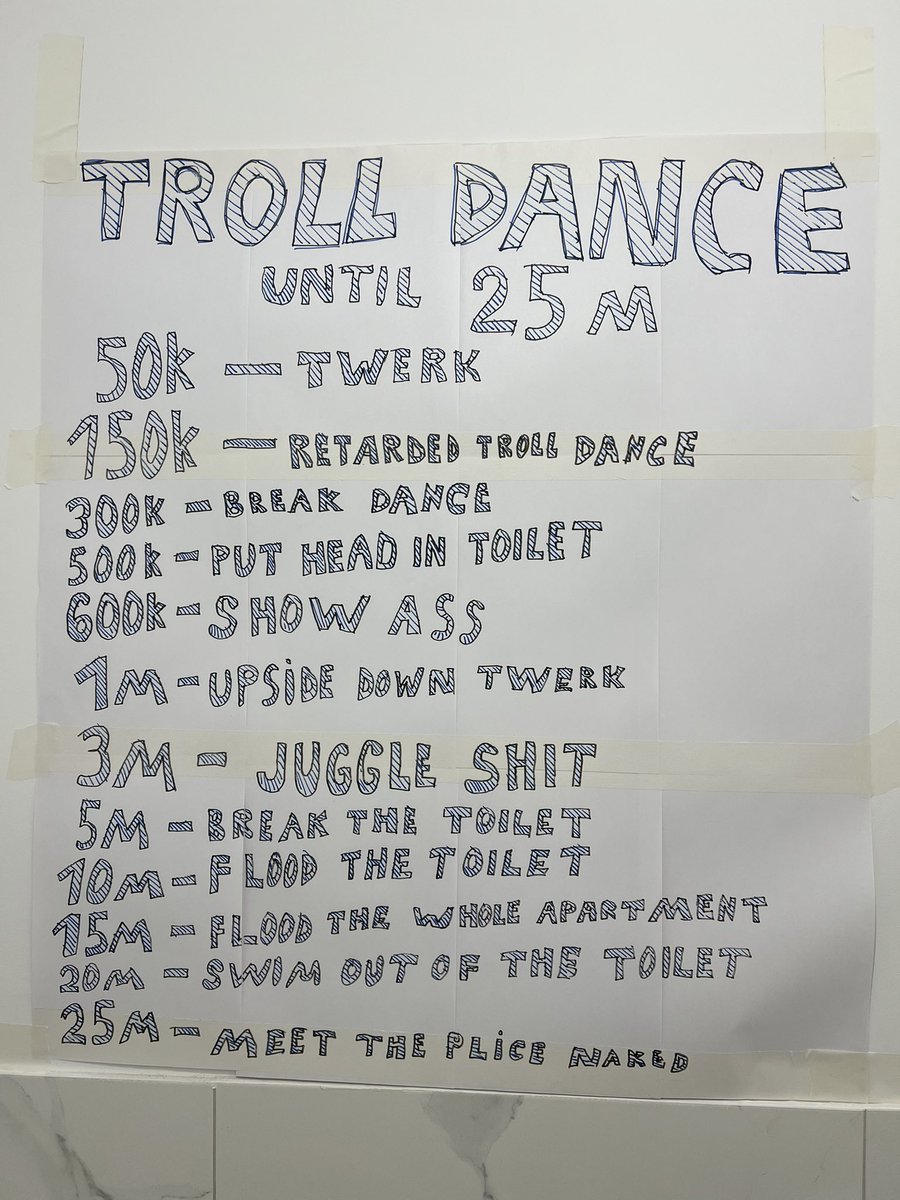 TROLL DANCE
UNTIL 25M
50k — TWERK
150k — RETARDED TROLL DANCE
300K - BREAK DANCE
500k - PUT HEAD IN TOILET
600k - SHOW ASS
1M - UPSiDE DOWN TWERK
3M - JUGGLE SHIT
5M - BREAK THE TOILET
10M - FLOOD THE TOILET
15M - FLOOD THE WHOLE APARTMENT
20M - SWIM OUT OF THE TOILET
25M - MEET THE PLiCE NAKED